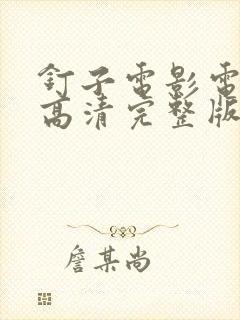 釘子電影電
高清完整版
詹某尚